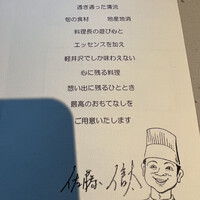 透き通った清流
旬の食材　地産地消
料理長の遊び心と
エッセンスを加え
軽井沢でしか味わえない
心に残る料理
想い出に残るひととき
最高のおもてなしを
ご用意いたします
佐藤